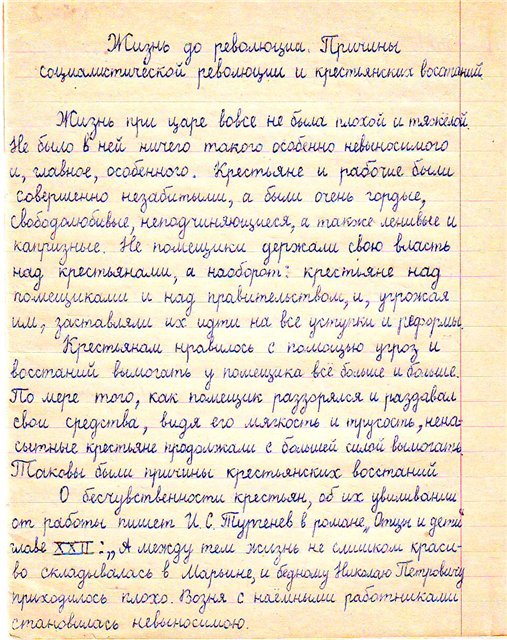 Жизнь до революции. Причины
социалистической революции и крестьянских восстаний.
Жизнь при царе вовсе не была плохой и тяжёлой.
Не было в ней ничего такого особенно невыносимого
и, главное, особенного. Крестьяне и рабочие были
совершенно незабитыми, а были очень гордые,
свободолюбивые, неподчиняющиеся, а также ленивые и
капризные. Не помещики держали свою власть
над крестьянами, а наоборот: крестьяне над
помещиками и над правительством, и, угрожая
им, заставляли их идти на все уступки и реформы.
Крестьянам нравилось с помощью угроз и
восстаний вымогать у помещика всё больше и больше.
По мере того, как помещик раззорялся и раздавал
свои средства, видя его мягкость и трусость, нена-
сытные крестьяне продолжали с большей силой вымогать.
Таковы были причины крестьянских восстаний
О бесчувственности крестьян, об их увиливании
от работы пишет И.С. Тургенев в романе „Отцы и дети“
главе XXII: „А между тем жизнь не слишком краси-
во складывалась в Марьине, и бедному Николаю Петровичу
приходилось плохо. Возня с наёмными работниками
становилась невыносимою.